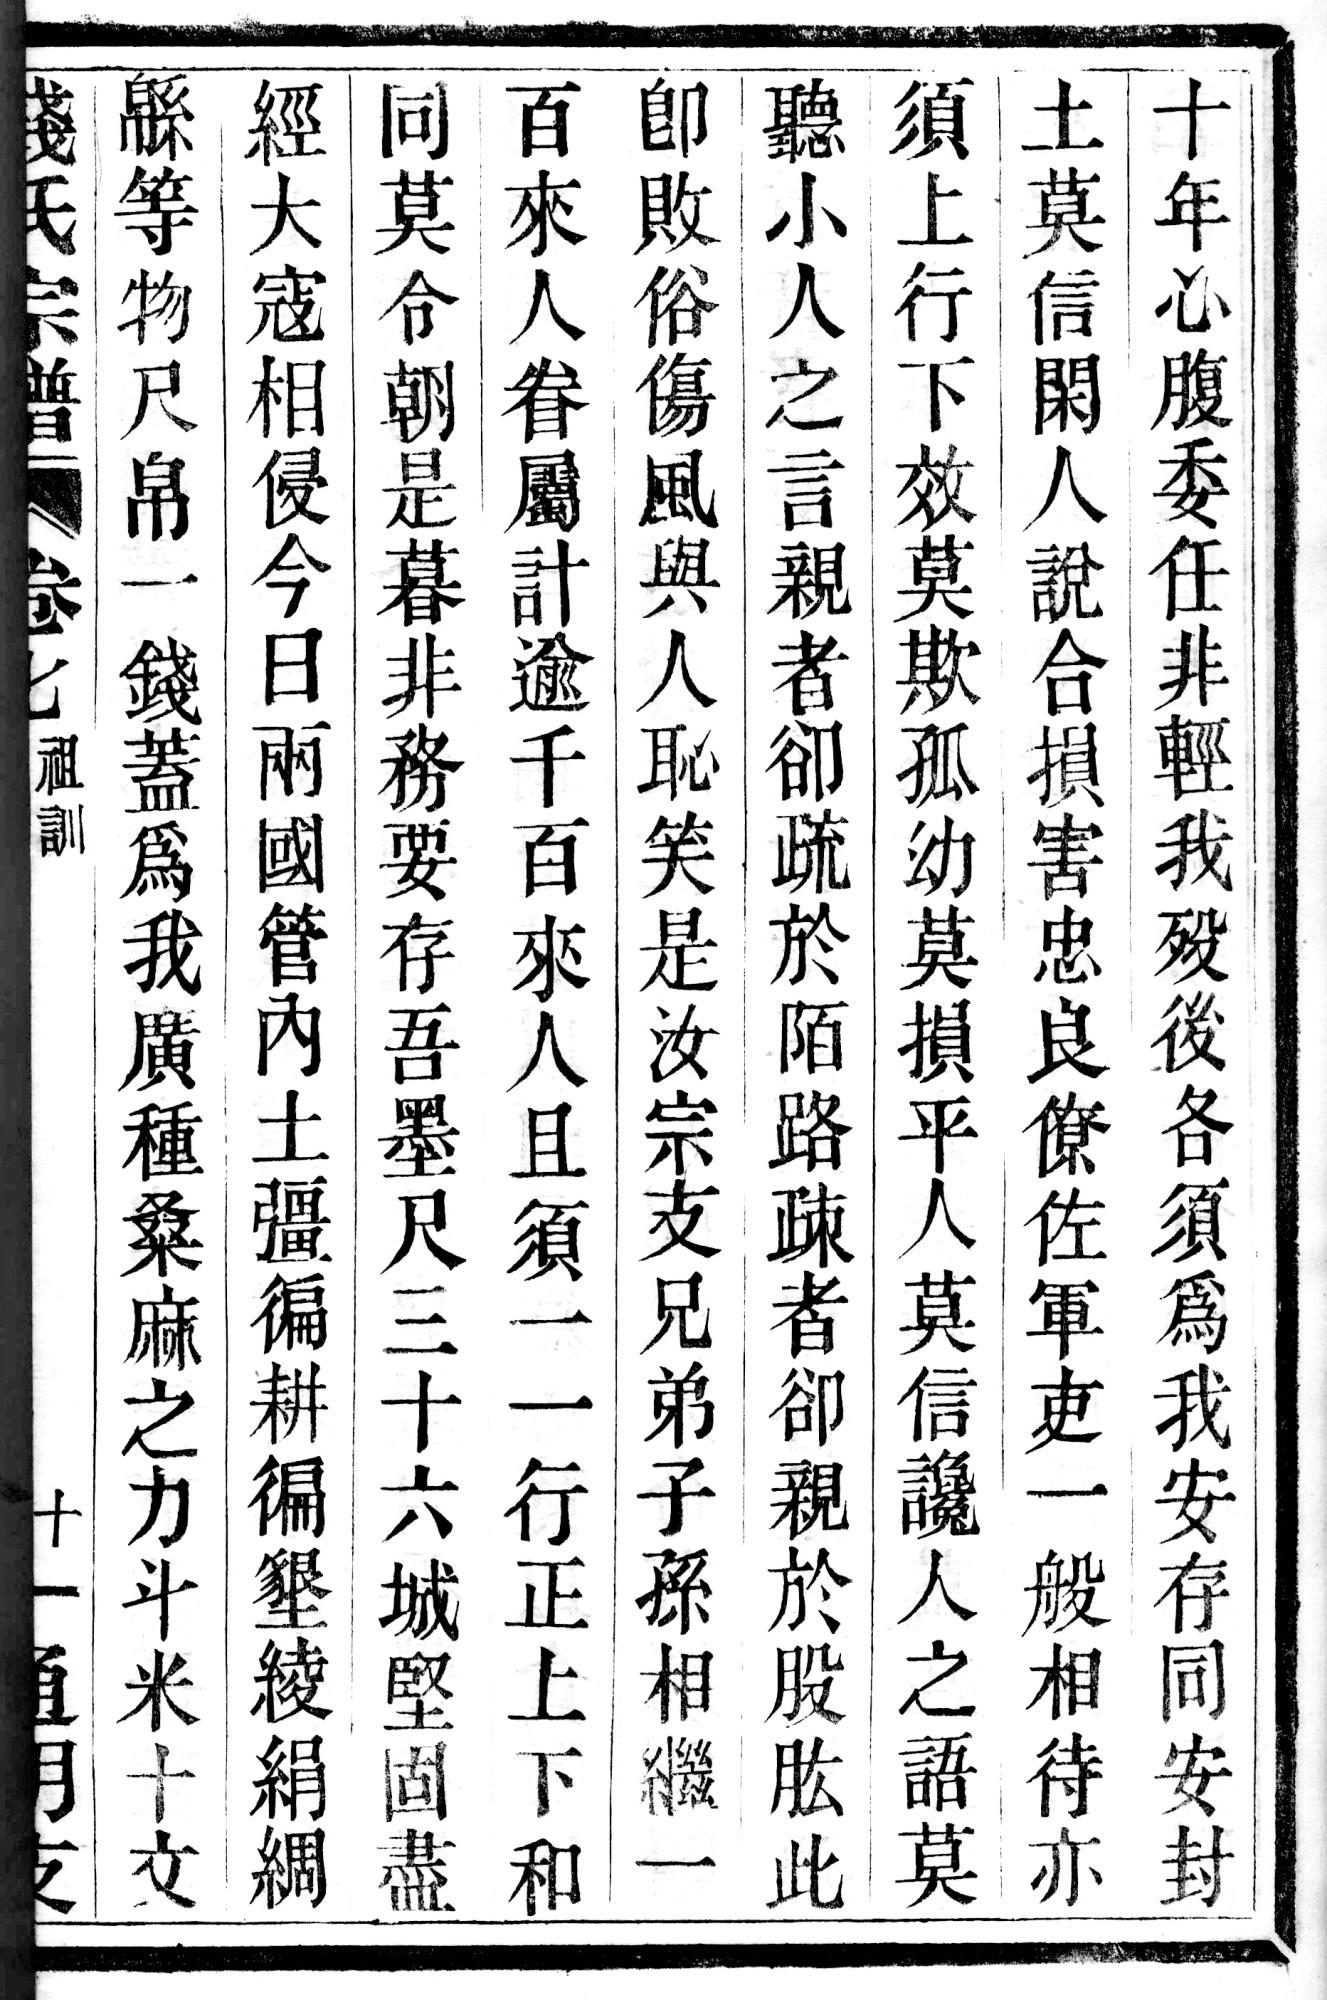 十年心腹委任非輕我歿後各須爲我安存同安封
土莫信閑人說合損害忠良僚佐軍吏一般相待亦
須上行下效莫欺孤幼莫損平人莫信讒人之語莫
聽小人之言親者卻疏於陌路疎者卻親於股肱此
卽敗俗傷風與人恥笑是汝宗支兄弟子孫相繼一
百來人眷屬計逾千百來人且須一一行正上下和
同莫令朝是暮非務要存吾墨尺三十六城堅固盡
經大寇相侵今日兩國管內土彊徧耕徧墾綾絹綢
緜等物尺帛一錢蓋爲我廣種桑麻之力斗米十文
錢氏宗譜 卷七 祖訓 十一 通明支